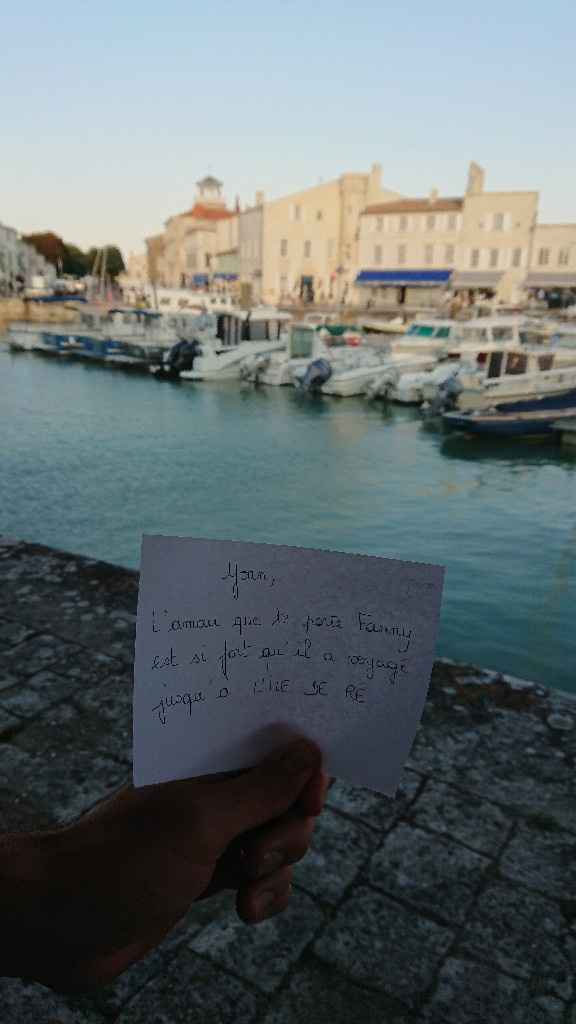 Yoan,
L'amour que te porte Fanny
est si fort qu'il a voyagé
jusqu'à L'ILE DE RE